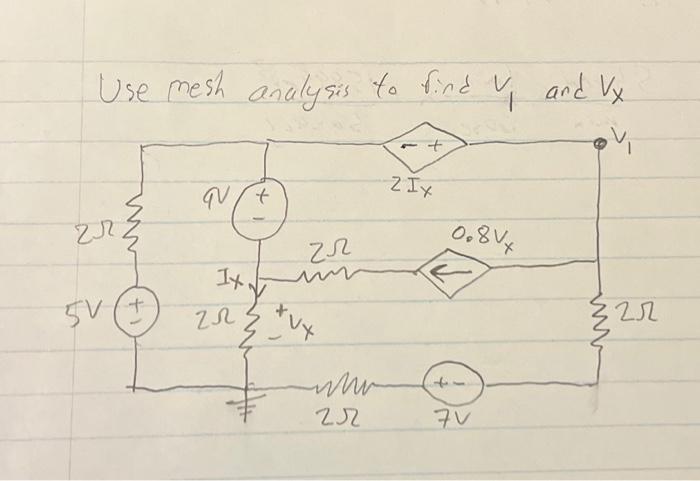 Use mesh analysis to find V₁ and Vx
V₁
- +
2Ix
9V
+
-
2Ω
0.8Vx
2Ω
Ix
5V
+
-
2Ω
+
Vx
-
2Ω
+ -
2Ω
7V